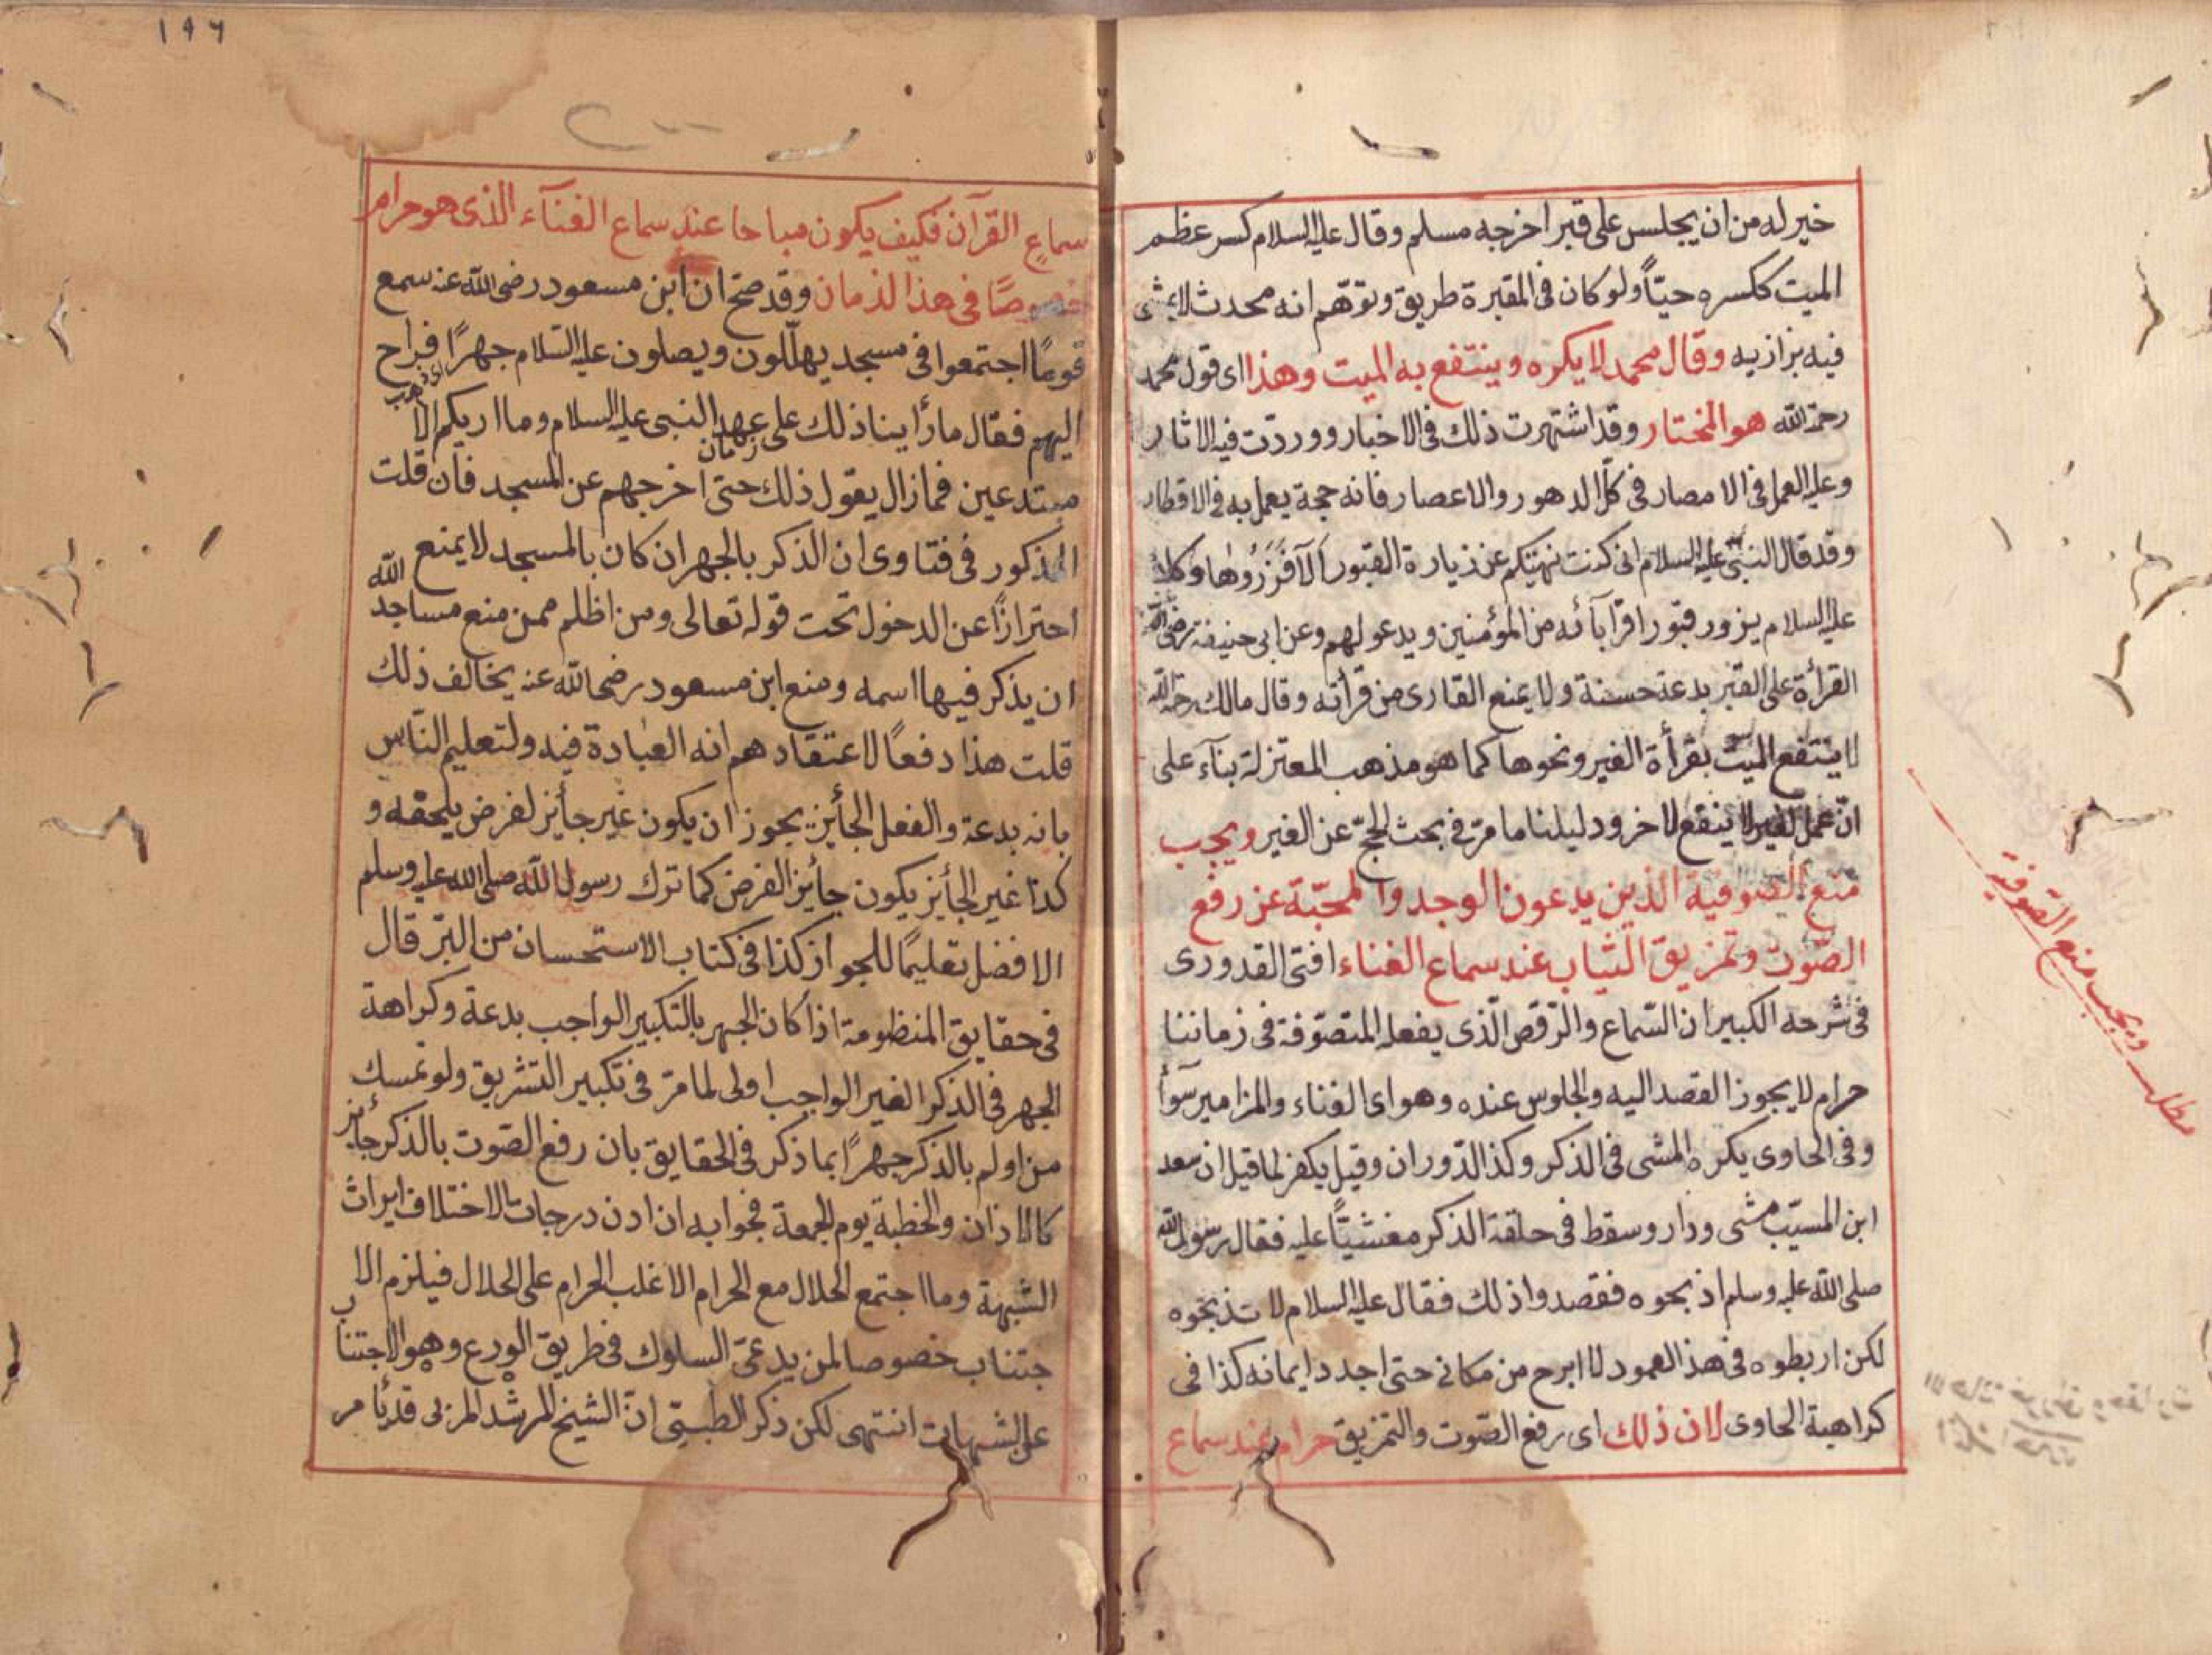 خير له من ان يجلس على قبر اخرجه مسلم وقال عليه السلام كسر عظم
الميت ككسره حيّاً ولو كان فى المقبرة طريق وتوهّم انه محدث لا يمشى
فيه بزازيه وقال محمد لا يكره وينتفع به الميت وهذا اى قول محمد
رحمة الله هو المختار وقد اشتهرت ذلك فى الاخبار ووردت فيه الاثار
وعليه العمل فى الامصار فى كل الدهور والاعصار فانه حجة يعمل به فى الاقطار
وقد قال النبى عليه السلام انى كنت نهيتكم عن زيارة القبور الا فزروها وكان
عليه السلام يزور قبور اقرآبائه من المؤمنين ويدعو لهم وعن ابى حنيفة رضى الله
القرأة على القبر بدعة حسنة ولا يمنع القارى من قرأته وقال مالك رحمه الله
لا ينتفع الميت بقرأة الغير ونحوها كما هو مذهب المعتزلة بنآء على
انّ عمل الغير لا ينفع لاخر ودليلنا ما مرّ فى بحث الحج عن الغير ويجب
منع الصوفية الذين يدعون الوجد والمحبّة عن رفع
الصّوت وتمزيق الثياب عند سماع الغناء افتى القدورى
فى شرحه الكبير ان السّماع والرّقص الّذى يفعله المتصوّفة فى زماننا
حرام لا يجوز القصد اليه والجلوس عنده وهو اى الغناء والمزامير سوآء
وفى الحاوى يكره المشى فى الذكر وكذا الدّوران وقيل يكفر لما قيل ان سعد
ابن المسيّب مشى ودار وسقط فى حلقة الذكر مغشيّاً عليه فقال رسول الله
صلى الله عليه وسلم اذبحوه فقصدوا ذلك فقال عليه السلام لا تذبحوه
لكن اربطوه فى هذ العمود لا ابرح من مكانى حتى اجدد ايمانه كذا فى
كراهية الحاوى لان ذلك اى رفع الصّوت والتمزيق حرام عند سماع
مطلب ويجب منع الصّوفية
١٩٦
سماعِ القرآن فكيف يكون مباحا عند سماع الغنآء الذى هو حرام
خصوصًا فى هذا الذمان وقد صحّ ان ابن مسعود رضى الله عنه سمع
قومًا اجتمعوا فى مسجد يهلّلون ويصلون عليه السّلام جهرًا فراح
اى ذهب
اليهم فقال ما رأينا ذلك على عهد النبى عليه السلام وما اريكم الا
زمان
مبتدعين فما زال يقول ذلك حتى اخرجهم عن المسجد فان قلت
المذكور فى فتاوى ان الذكر بالجهر ان كان بالمسجد لا يمنع
احترازًا عن الدخول تحت قوله تعالى ومن اظلم ممن منع مساجد الله
ان يذكر فيها اسمه ومنع ابن مسعود رضى الله عنه يخالف ذلك
قلت هذا دفعًا لاعتقادهم انه العبادة فيه ولتعليم النّاس
بانه بدعة والفعل الجأيز يجوز ان يكون غير جأيز لغرض يلحقه و
كذا غير الجأيز يكون جأيز الغرض كما ترك رسول الله صلى الله عليه وسلم
الافضل تعليمًا للجواز كذا فى كتاب الاستحسان من البزّ قال
فى حقايق المنظومة اذا كان الجهر بالتكبير الواجب بدعة وكراهة
الجهر فى الذكر الغير الواجب اولى لما مرّ فى تكبير التشريق ولو تمسك
من اولم بالذكر جهرًا بما ذكر فى الحقايق بان رفع الصّوت بالذكر جأيز
كالاذان والخطبة يوم الجمعة فجوابه ان ادن درجات الاختلاف ايراث
الشبهة وما اجتمع الحلال مع الحرام الا غلب الحرام على الحلال فيلزم الا
جتناب خصوصا لمن يدعىّ السلوك فى طريق الورع وهو الاجتناب
على الشبهات انتهى لكن ذكر الطيبىّ انّ الشيخ المرشد المربى قد يأمر